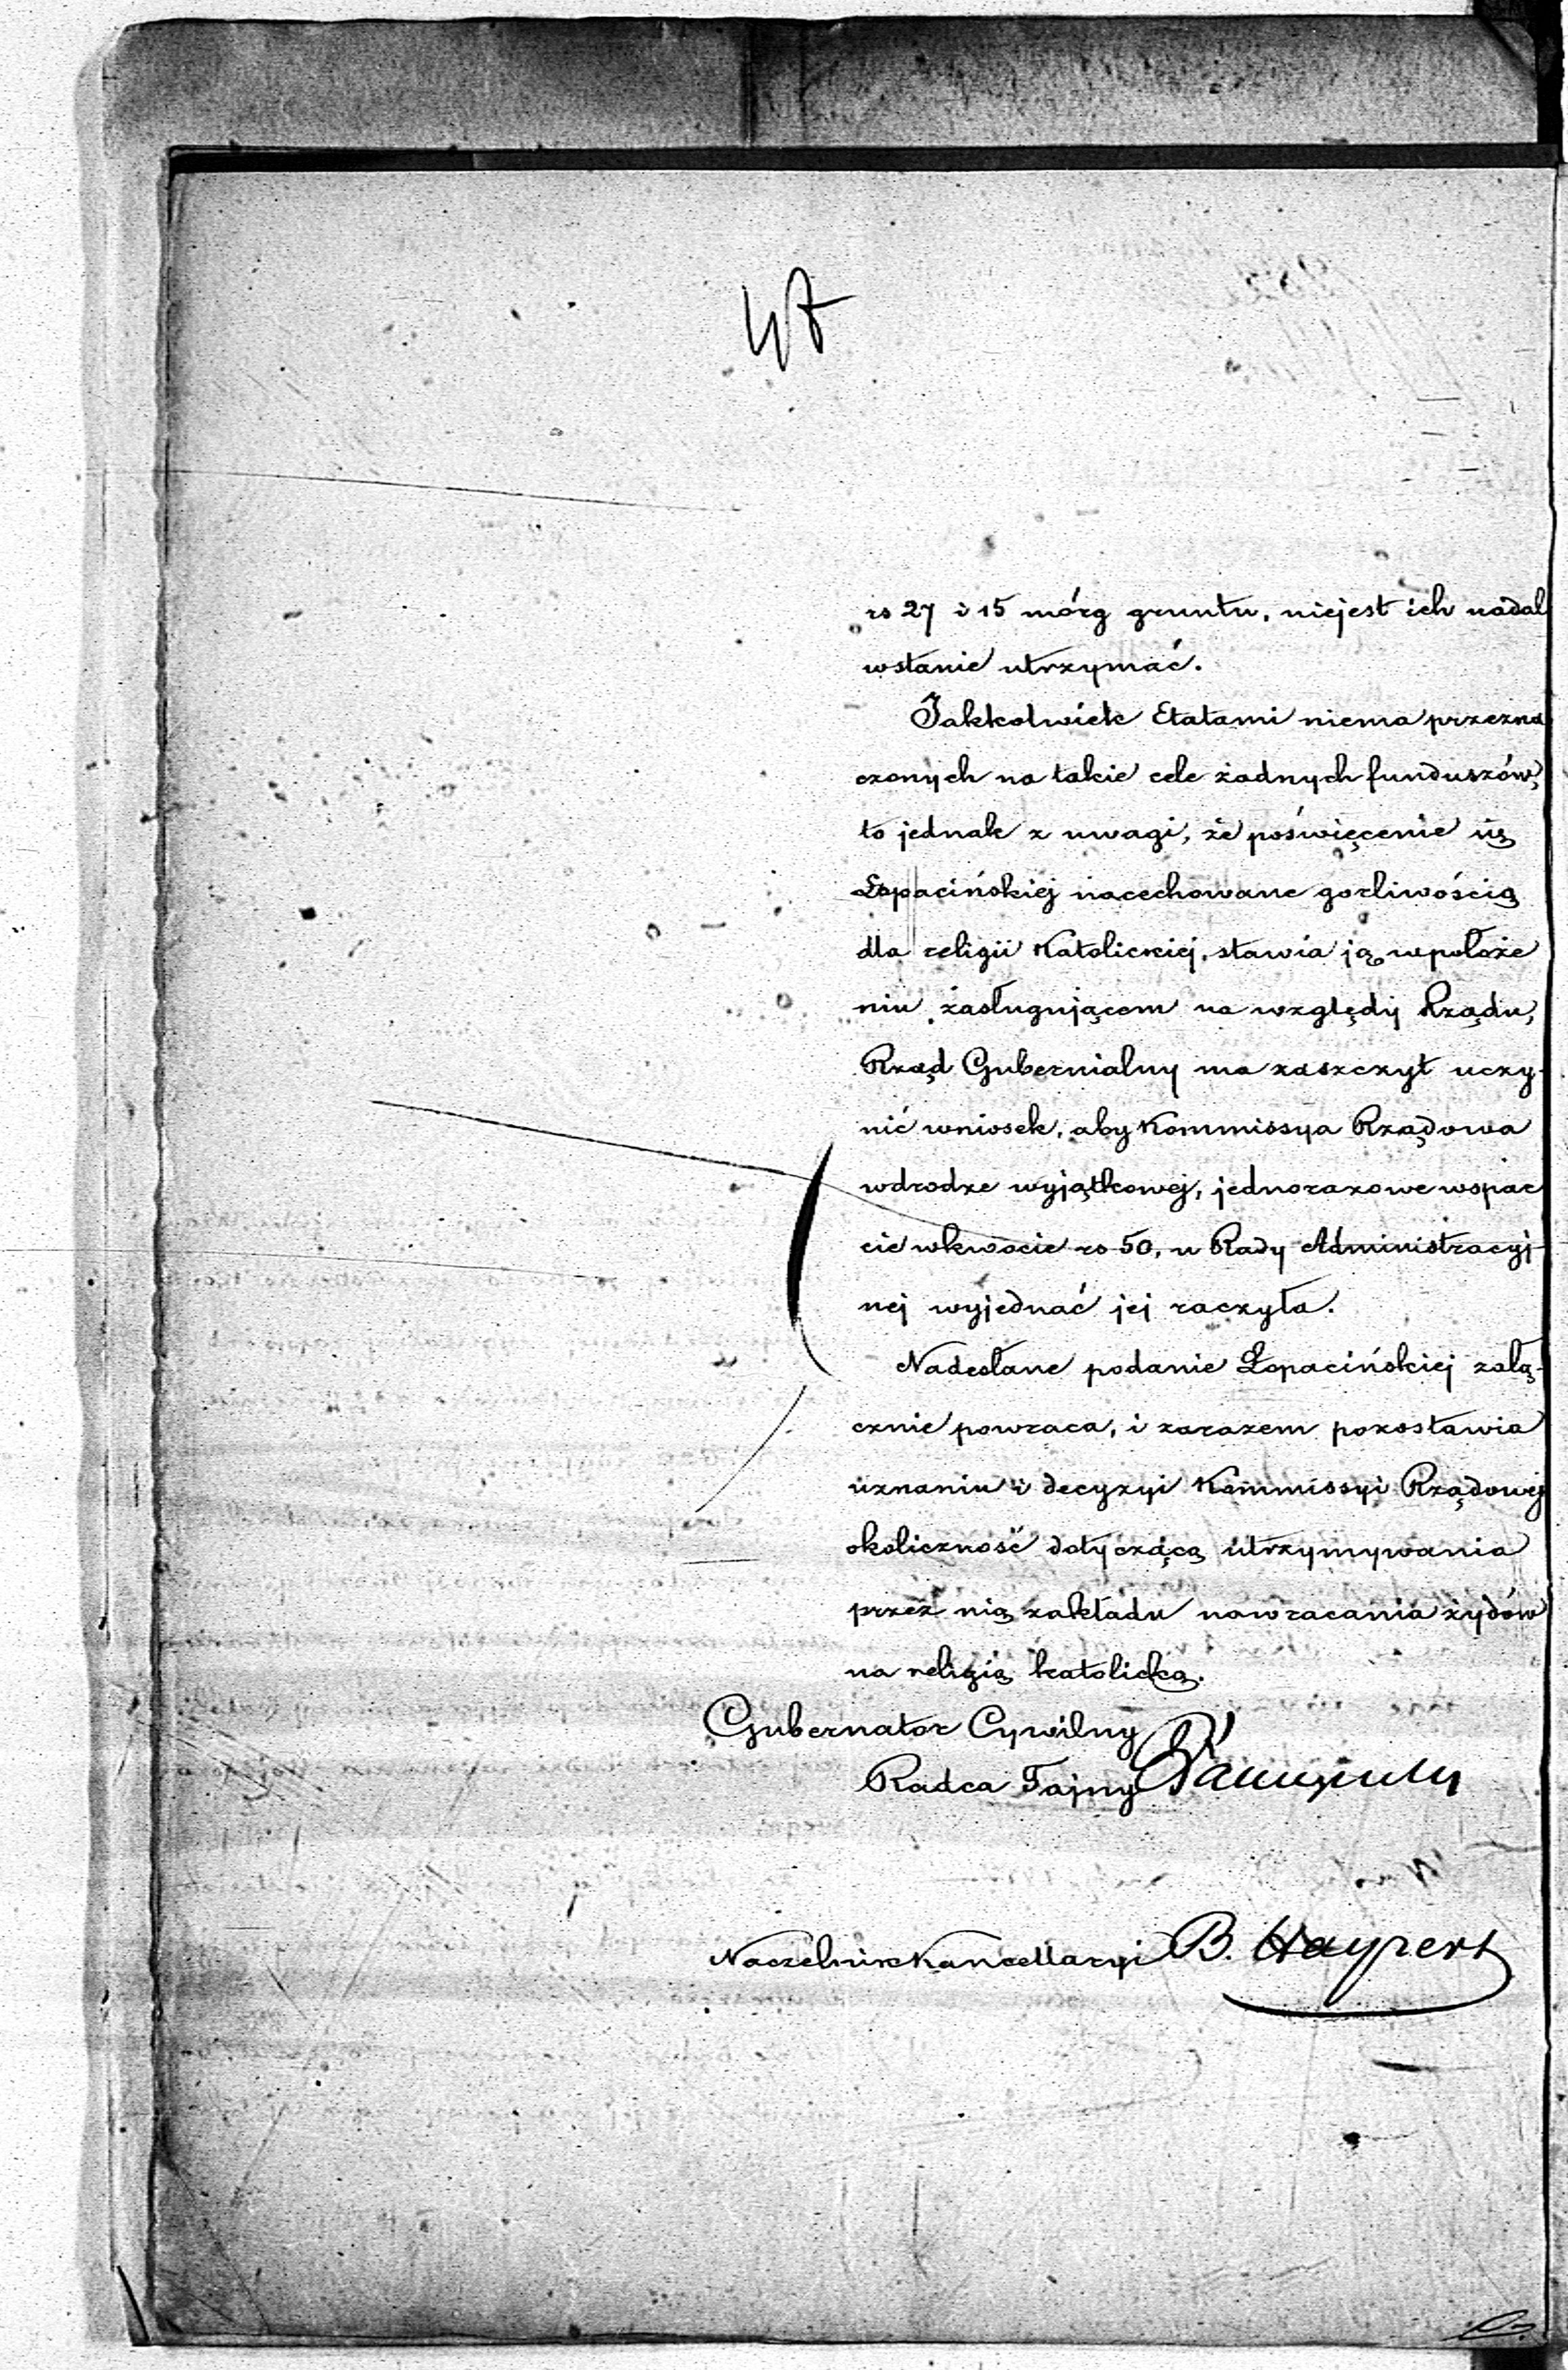 47
rs 27 i 15 mórg gruntu, niejest ich nadal
wstanie utrzymać.
Jakkolwiek Etatami niema przezna
czonych na takie cele żadnych funduszów,
to jednak z uwagi, że poświęcenie się
Łopacińskiej nacechowane gorliwością
dla religii Katolickiej, stawia ją wpołoże
niu zasługującem na względy Rządu,
Rząd Gubernialny ma zaszczyt uczy-
nić wniosek, aby Kommissya Rządowa
wdrodze wyjątkowej, jednorazowe wspar
cie wkwocie rs 50, u Rady Administracyj-
nej wyjednać jej raczyła.
Nadesłane podanie Łopacińskiej załą-
cznie powraca, i zarazem pozostawia
uznaniu i decyzyi Kommissyi Rządowej
okoliczność dotyczącą utrzymywania
przez nią zakładu nawracania żydów
na religią katolicką.
Gubernator Cywilny
Radca Tajny
Naczelnik Kancellaryi B. Haypert